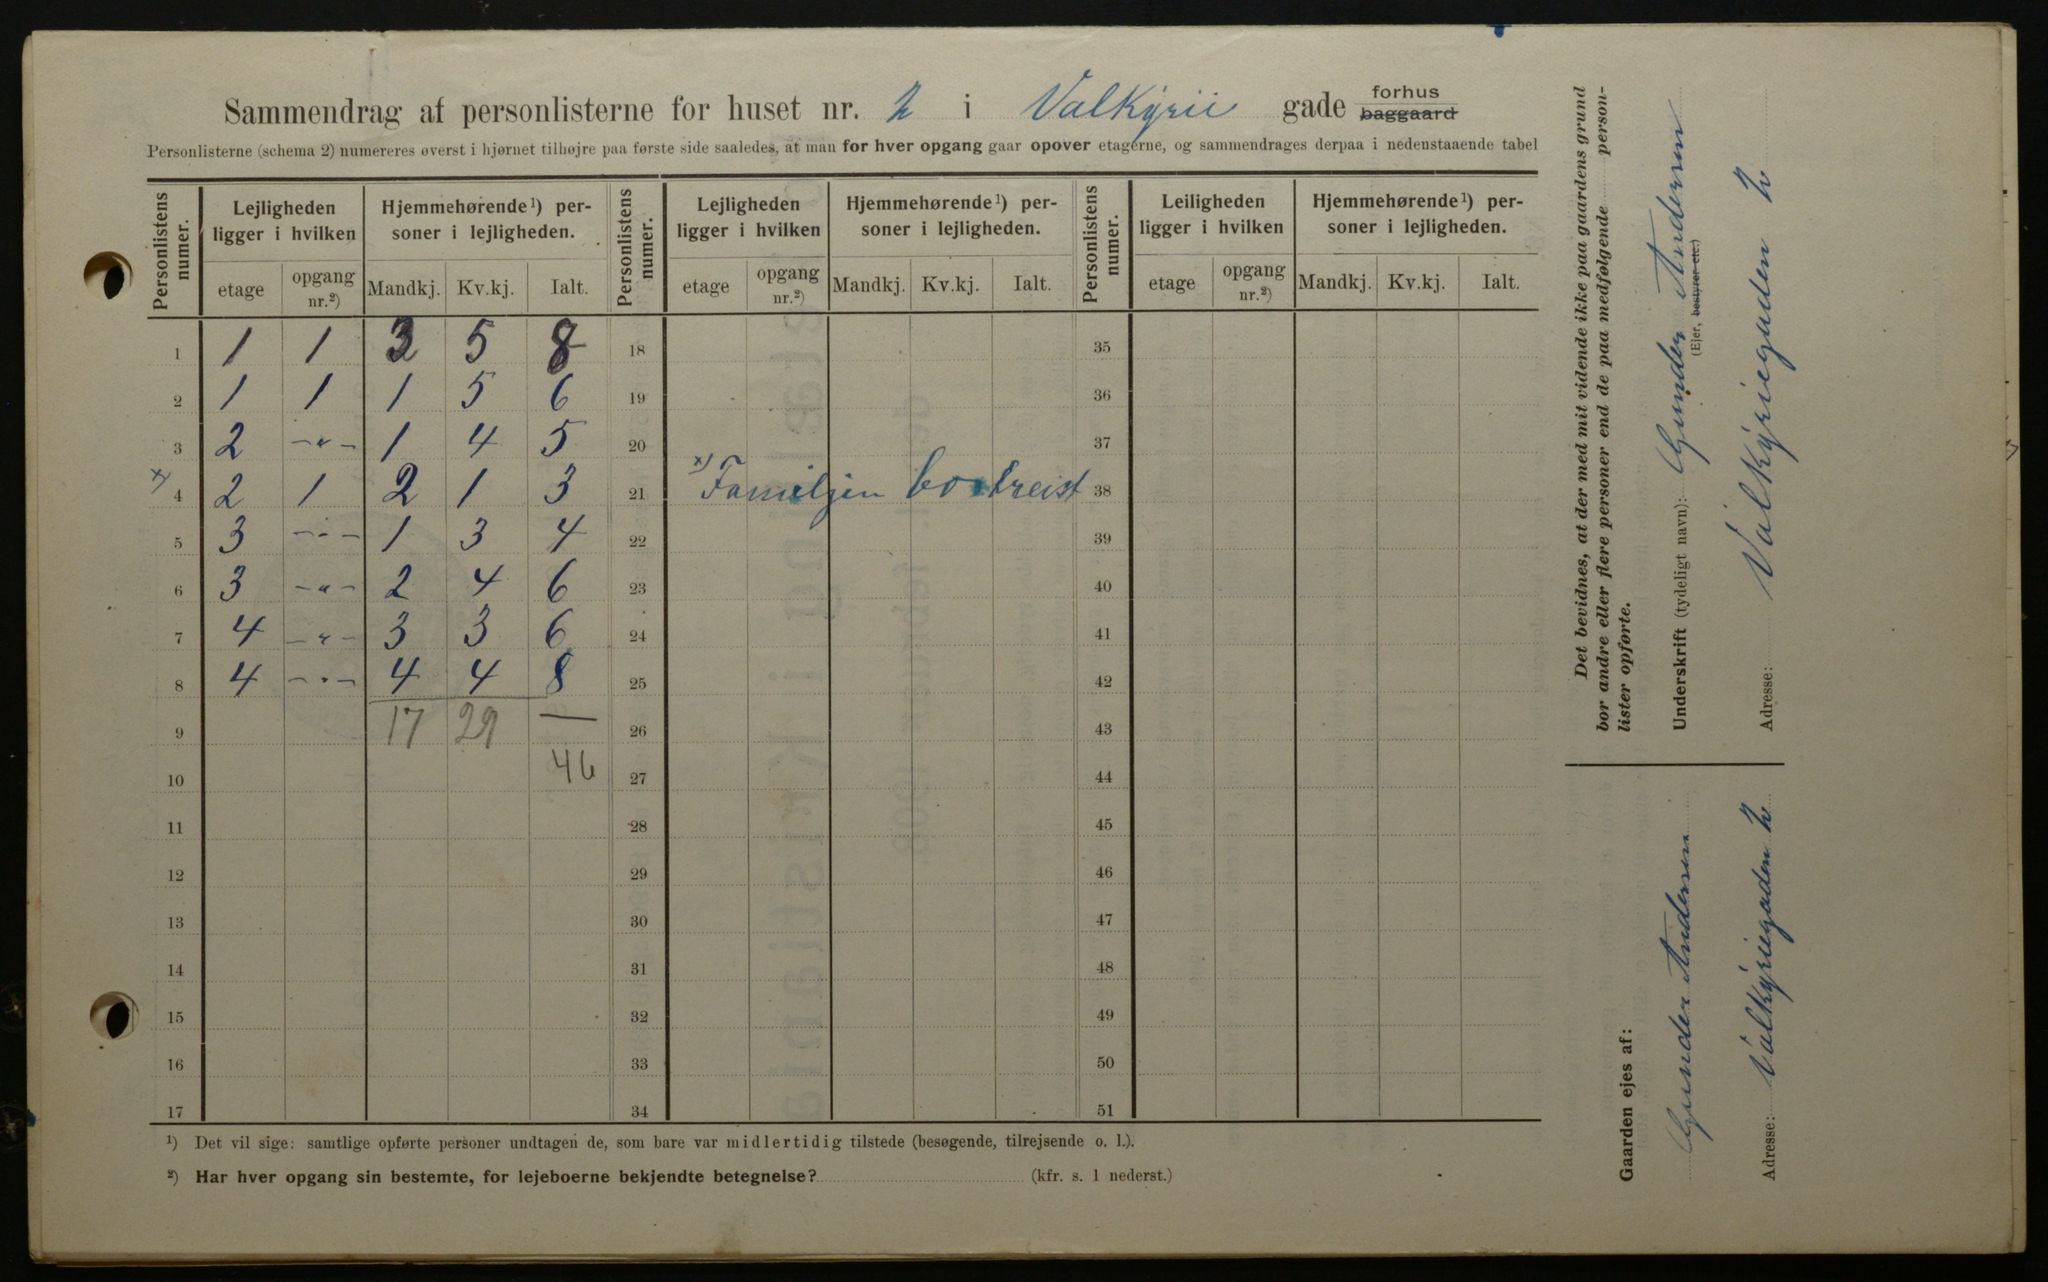 Sammendrag af personlisterne for huset nr. 2 i Valkyrii gade forhus ~~baggaard~~
Personlisterne (schema 2) numereres øverst i hjørnet tilhøjre paa første side saaledes, at man for hver opgang gaar opover etagerne, og sammendrages derpaa i nedenstaaende tabel
Personlistens numer. | Lejligheden ligger i hvilken | Hjemmehørende¹) personer i lejligheden. | Personlistens numer. | Lejligheden ligger i hvilken | Hjemmehørende¹) personer i lejligheden. | Personlistens numer. | Leiligheden ligger i hvilken | Hjemmehørende¹) personer i lejligheden.
etage | opgang nr.²) | Mandkj. | Kv.kj. | Ialt. | etage | opgang nr.²) | Mandkj. | Kv.kj. | Ialt. | etage | opgang nr.²) | Mandkj. | Kv.kj. | Ialt.
1 | 1 | 1 | 3 | 5 | 8 | 18 | 35
2 | 1 | 1 | 1 | 5 | 6 | 19 | 36
3 | 2 | -"- | 1 | 4 | 5 | 20 | 37
x) 4 | 2 | 1 | 2 | 1 | 3 | 21 | x) Familjen bortreist | 38
5 | 3 | -"- | 1 | 3 | 4 | 22 | 39
6 | 3 | -"- | 2 | 4 | 6 | 23 | 40
7 | 4 | -"- | 3 | 3 | 6 | 24 | 41
8 | 4 | -"- | 4 | 4 | 8 | 25 | 42
9 | 17 | 29 | — | 26 | 43
10 | 46 | 27 | 44
11 | 28 | 45
12 | 29 | 46
13 | 30 | 47
14 | 31 | 48
15 | 32 | 49
16 | 33 | 50
17 | 34 | 51
¹) Det vil sige: samtlige opførte personer undtagen de, som bare var midlertidig tilstede (besøgende, tilrejsende o. l.).
²) Har hver opgang sin bestemte, for lejeboerne bekjendte betegnelse? (kfr. s. 1 nederst.)
Det bevidnes, at der med mit vidende ikke paa gaardens grund
bor andre eller flere personer end de paa medfølgende personlister opførte.
Underskrift (tydeligt navn): Gunder Andersen
(Ejer, ~~bestyrer etc.~~)
Adresse: Valkyriegaden 2
Gaarden ejes af:
Gunder Andersen
Adresse: Valkyriegaden 2